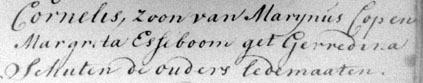 Cornelis, zoon van Marynus Cop en
Margrita Esseboom get Gerredina
Schuten de ouders ledemaaten.